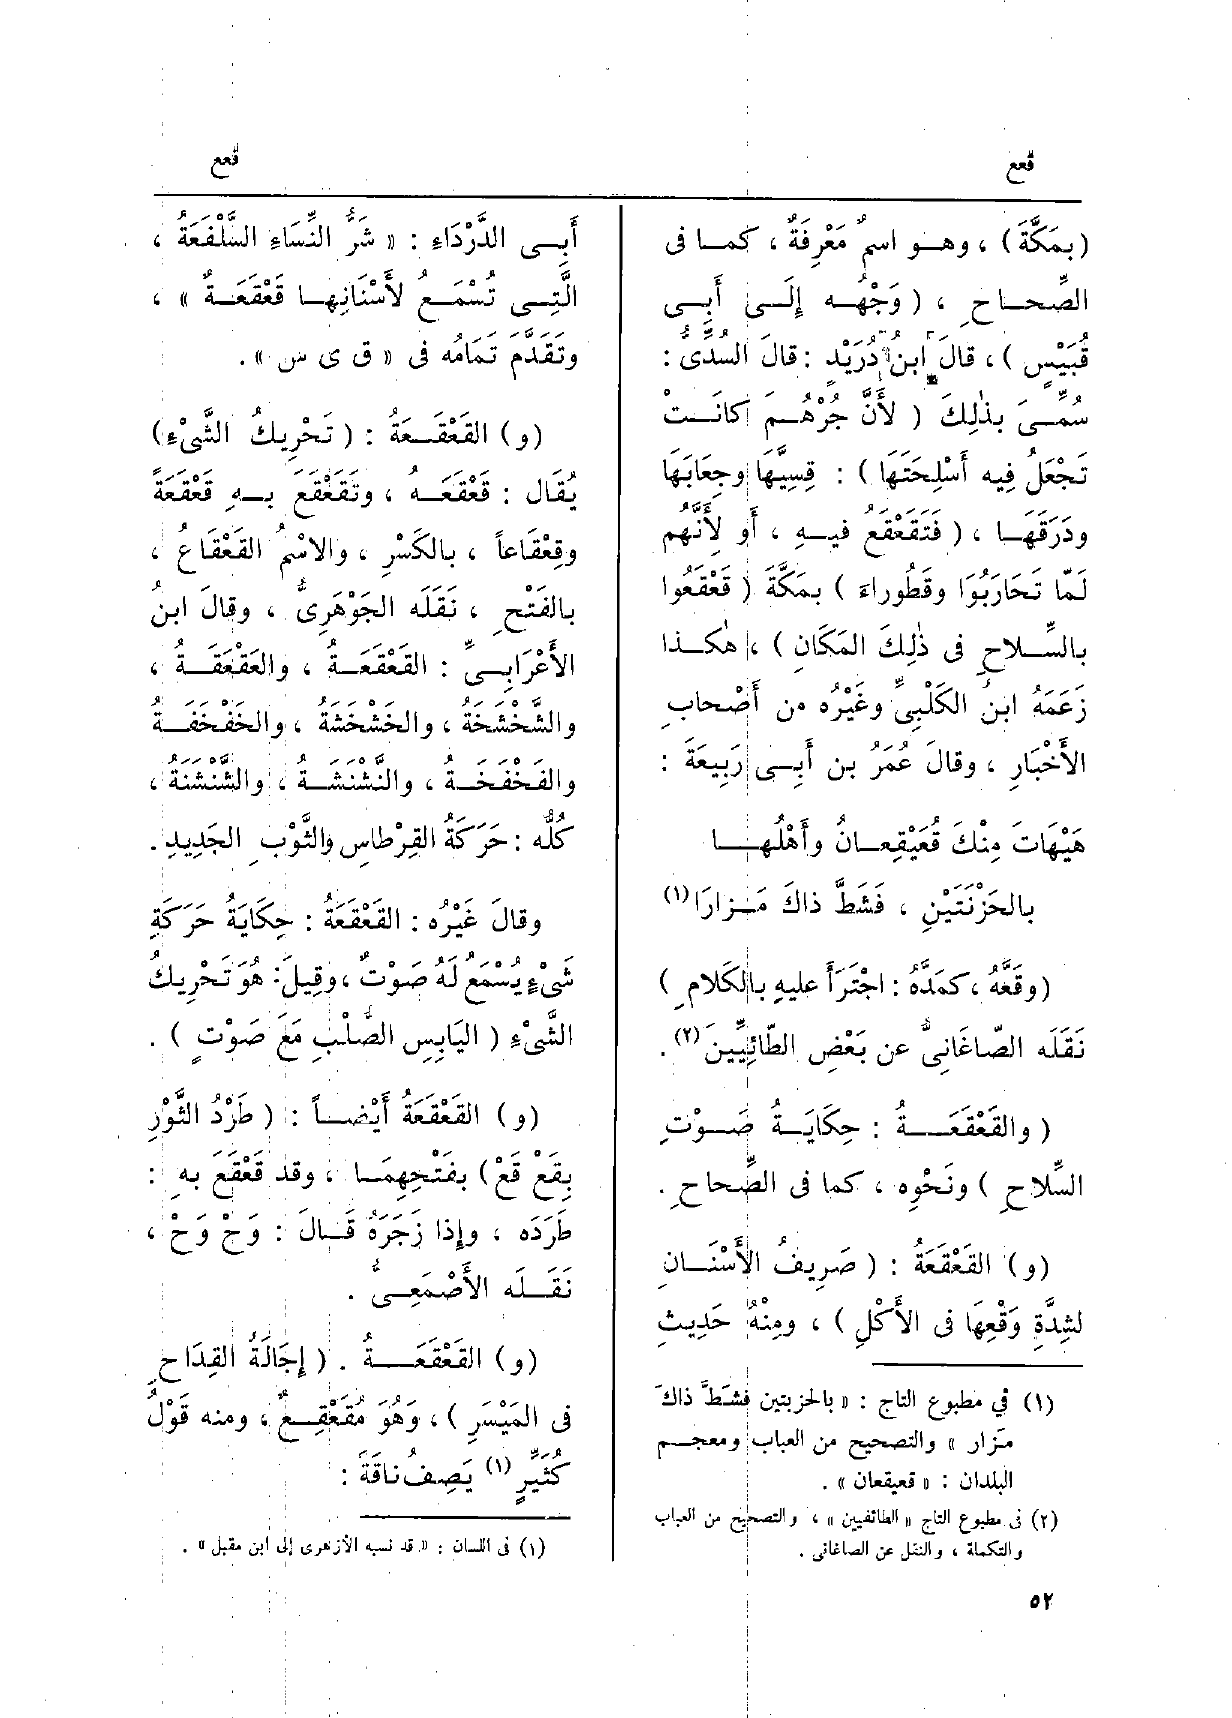 قعع
قعع
(بمَكَّةَ) ، وهـو اسمٌ مَعْرِفَةٌ ، كمـا فى
الصِّحـاحِ ، ( وَجْهُـه إِلَـى أَبِـى
قُبَيْسٍ ) ، قالَ ابنُ دُرَيْدٍ : قالَ السُّدِّىُّ :
سُمِّـىَ بذٰلِكَ ( لأَنَّ جُرْهُـمَ كانَـتْ
تَجْعَلُ فِيه أَسْلِحَتَهَا ) : قِسِيَّهَا وجِعَابَهَا
ودَرَقَهَـا ، ( فَتَقَعْقَعُ فيـهِ ، أَو لِأَنَّهُم
لَمّا تَحَارَبُوا وقَطُوراءَ ) بمَكَّةَ ( قَعْقَعُوا
بالسِّـلاحِ فى ذٰلِكَ المَكَانِ ) ، هٰكـذا
زَعَمَهُ ابنُ الكَلْبِىِّ وغَيْرُه من أَصْحابِ
الأَخْبَارِ ، وقالَ عُمَرُ بن أَبِـى رَبِيعَةَ :
هَيْهَاتَ مِنْكَ قُعَيْقِعـانُ وأَهْلُهـــا
بالحَزْنَتَيْنِ ، فَشَطَّ ذاكَ مَـزارَا (١)
(وقَعَّهُ ، كمَدَّهُ : اجْتَرَأَ عليهِ بالكَلامِ )
نَقَلَه الصّاغَانِىُّ عن بَعْضِ الطّائِيِّينَ (٢) .
( والقَعْقَعَــةُ : حِكَايَـةُ صَـوْتِ
السِّلاحِ ) ونَحْوِه ، كما فى الصِّحاحِ .
(و) القَعْقَعَةُ : ( صَرِيفُ الأَسْنَـانِ
لشِدَّةِ وَقْعِهَا فى الأَكْلِ ) ، ومِنْهُ حَدِيثُ
(١) في مطبوع التاج : « بالحزبتين فشَطَّ ذاكَ
مزار » والتصحيح من العباب ومعجـم
البلدان : « قعيقعان » .
(٢) فى مطبوع التاج « الطائفيين » ، والتصحيح من العباب
والتكملة ، والنقل عن الصاغانى .
٥٢
أَبِـى الدَّرْدَاءِ : « شَرُّ النِّسَاءِ السَّلْفَعَةُ ،
الَّتِـى تُسْمَـعُ لأَسْنَانِهـا قَعْقَعَـةٌ » ،
وتَقَدَّمَ تَمَامُه فى « ق ى س » .
(و) القَعْقَـعَةُ : ( تَحْرِيكُ الشَّىْءِ)
يُقَال : قَعْقَعَـهُ ، وتَقَعْقَع بـهِ قَعْقَعَةً
وقِعْقَاعاً ، بالكَسْرِ ، والاسْمُ القَعْقَاعُ ،
بالفَتْحِ ، نَقَلَه الجَوْهَرِىُّ ، وقالَ ابنُ
الأَعْرابِـىِّ : القَعْقَعَـةُ ، والعَقْعَقَـةُ ،
والشَّخْشَخَةُ ، والخَشْخَشَةُ ، والخَفْخَفَـةُ
والفَخْفَخَـةُ ، والنَّشْنَشَـةُ ، والشَّنْشَنَةُ ،
كُلُّه : حَرَكَةُ القِرْطاسِ والثَّوْبِ الجَدِيدِ .
وقالَ غَيْرُه : القَعْقَعَةُ : حِكايَةُ حَرَكَةِ
شَىْءٍ يُسْمَعُ لَهُ صَوْتٌ ، وقِيلَ : هُوَ تَحْرِيكُ
الشَّىْءِ ( اليَابِسِ الصُّلْبِ مَعَ صَوْتٍ ) .
(و) القَعْقَعَةُ أَيْضـاً : ( طَرْدُ الثَّوْرِ
بِقَعْ قَعْ ) بفَتْحِهِمَـا ، وقد قَعْقَعَ بهِ :
طَرَدَه ، وإذا زَجَرَهُ قَـالَ : وَحْ وَحْ ،
نَقَـلَه الأَصْمَعِـىُّ .
(و) القَعْقَعَــةُ . ( إِجَالَةُ القِدَاحِ
فى المَيْسَرِ ) ، وَهُوَ مُقَعْقِـعٌ ، ومنه قَوْلُ
كُثَيِّرٍ (١) يَصِفُ ناقَةً :
(١) فى اللسان : « قد نسبه الأزهرى إلى ابن مقبل » .